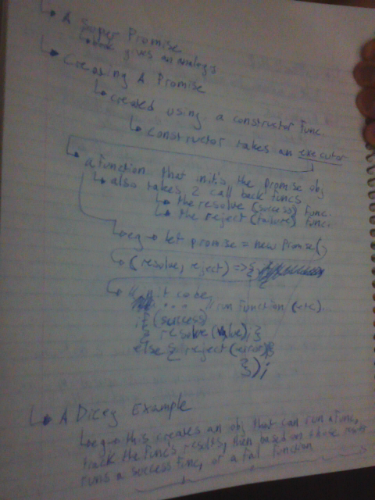 ↳ A Super Promise
↳ gives an analogy
↳ Creating A Promise
↳ created using a constructor func
↳ constructor takes an executor
↳ a function that inits the promise obj
↳ also takes 2 call back funcs
↳ the resolve (success) func.
↳ the reject (failure) func.
↳ eg → let promise = new Promise(
↳ (resolve, reject) => {
↳ init code
... // run function (etc)
if (success)
resolve(value); }
else { reject(error)}
});
↳ A Dicey Example
↳ eg → this creates an obj that can run a func,
track the funcs results, then based on those
runs a success func, or a fail function